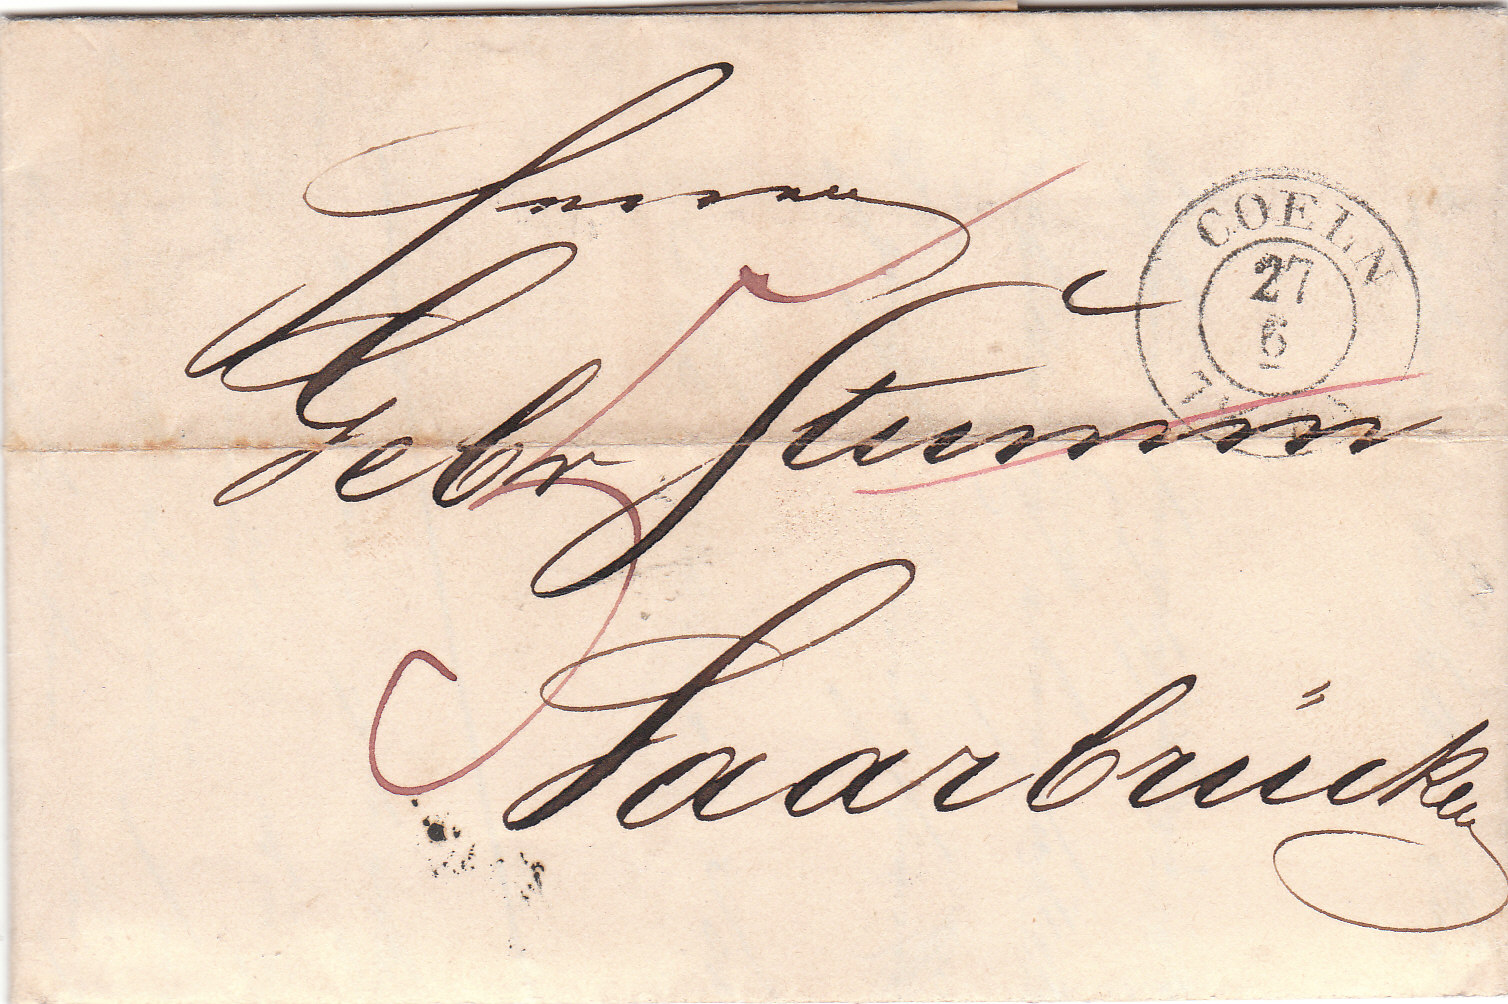 Herren
Gebr Stumm
Saarbrücken
COELN
27
6
3